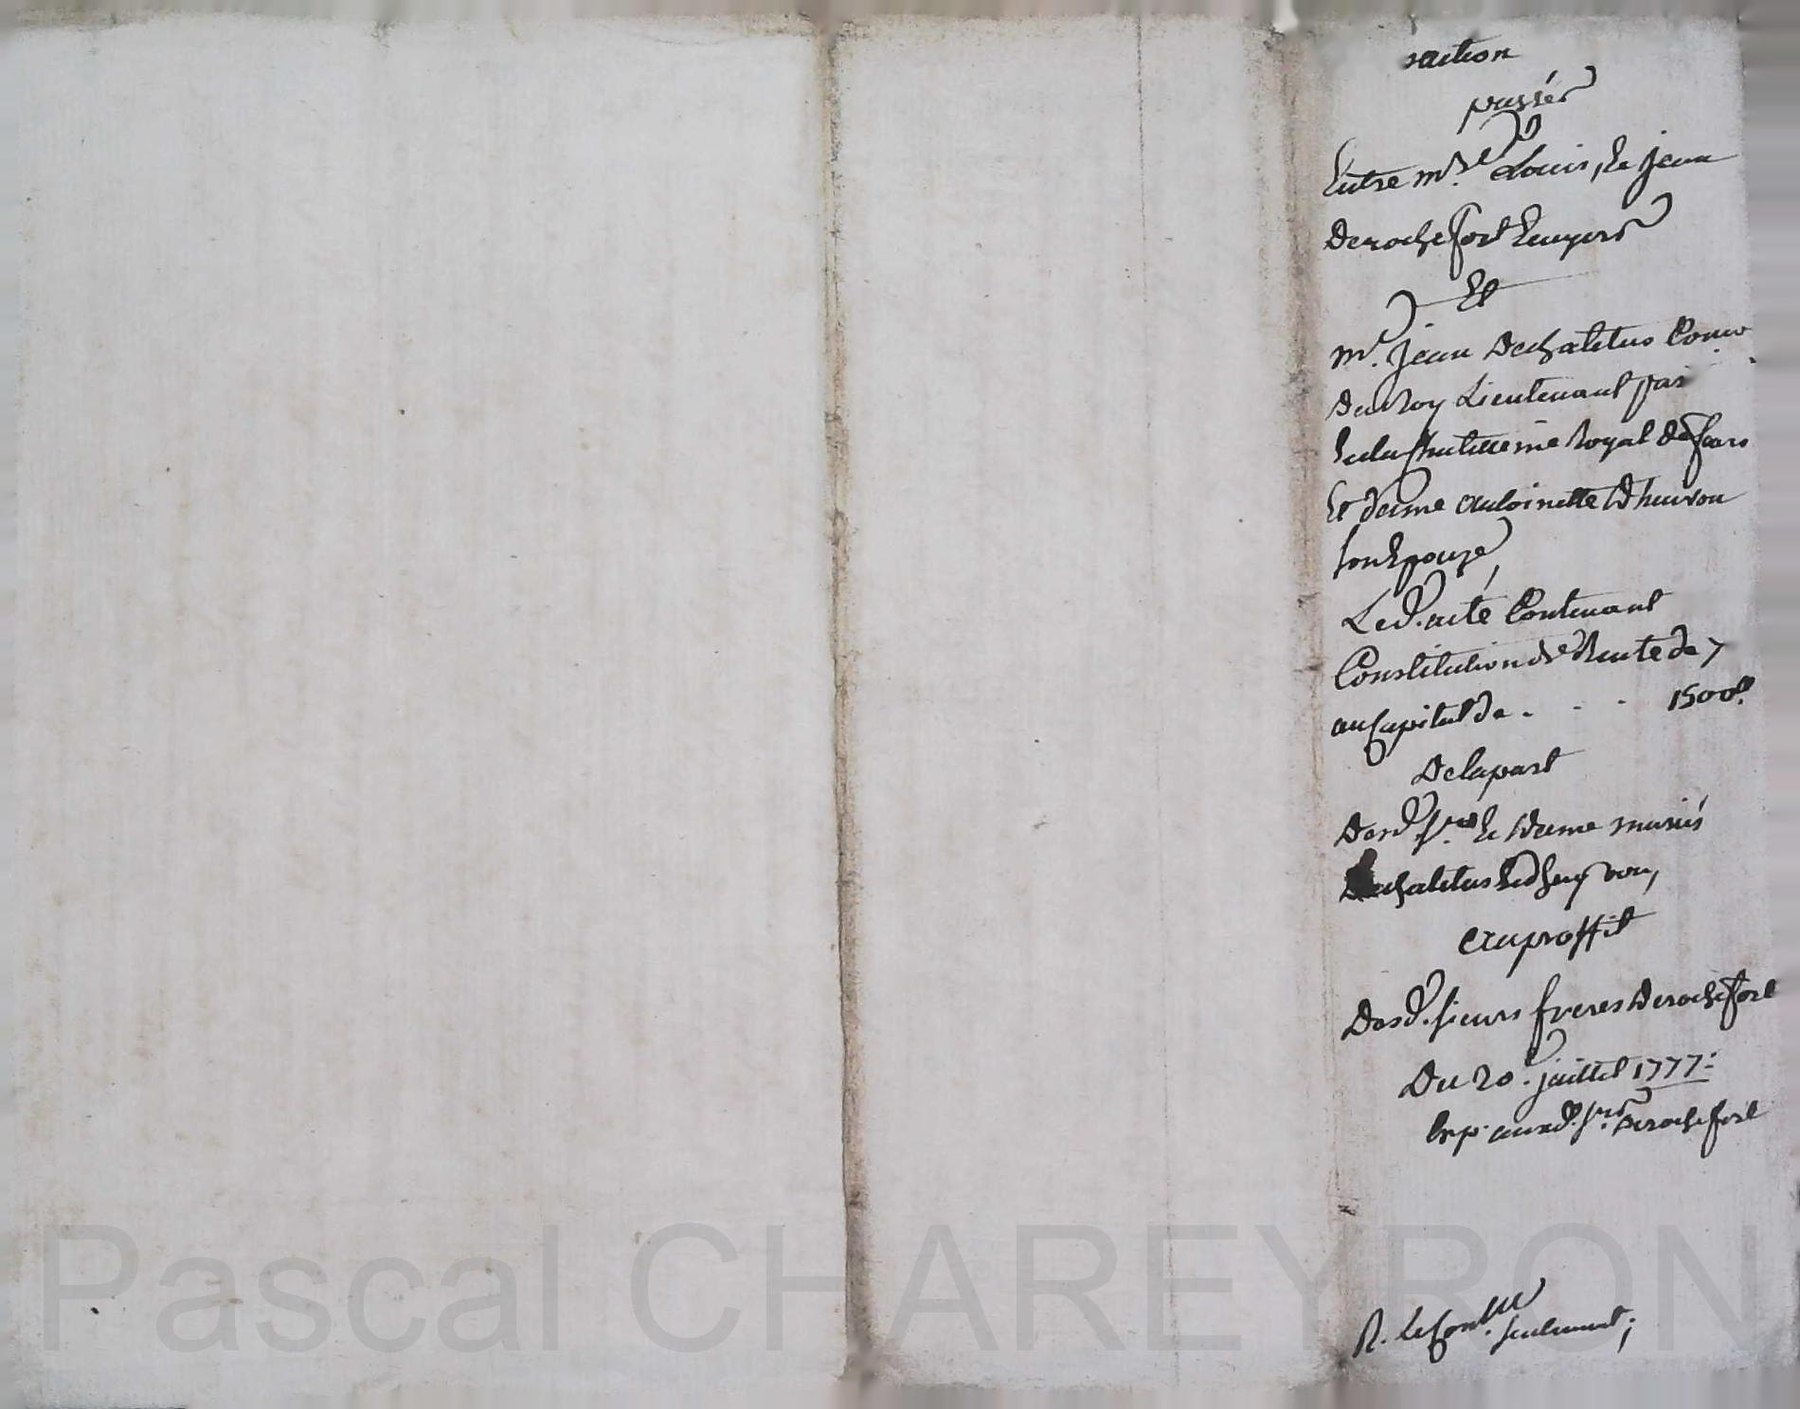 saction
passée
Entre mre Louis, & jean
Derochefort Ecuyers
Et
mr. jean Dechalelus Conser
du Roy Lieutenant par
En la Chatellenie Royal de feurs
Et dame antoinette Dheuvron
son Epouze,
Led. acte Contenant
Constitution de Rente de 7
au Capital de . . . 1500l.
De la part
Desd. srs. & dame mariés
Dechalelus & dheyvron,
au proffit
Desd. sieurs freres Derochefort
Du 20. juillet 1777.
Exp. auxd. srs. Derochefort
R. le Con.lle seulement;
Pascal CHAREYRON